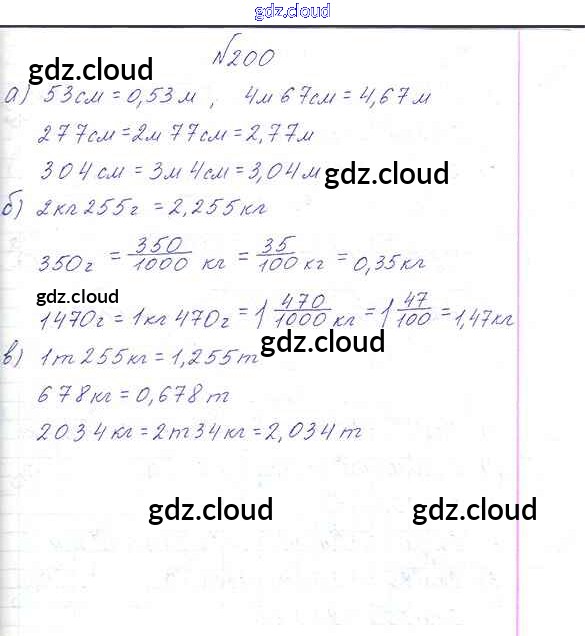 gdz.cloud
№200
gdz.cloud
а) 53см = 0,53м , 4м 67см = 4,67м
277см = 2м 77см = 2,77м
304см = 3м 4см = 3,04м
gdz.cloud
б) 2кг 255г = 2,255кг
350г = 350/1000 кг = 35/100 кг = 0,35кг
gdz.cloud
1470г = 1кг 470г = 1 470/1000 кг = 1 47/100 = 1,47кг
gdz.cloud
в) 1т 255кг = 1,255т
678кг = 0,678т
2034кг = 2т 34кг = 2,034т
gdz.cloud gdz.cloud